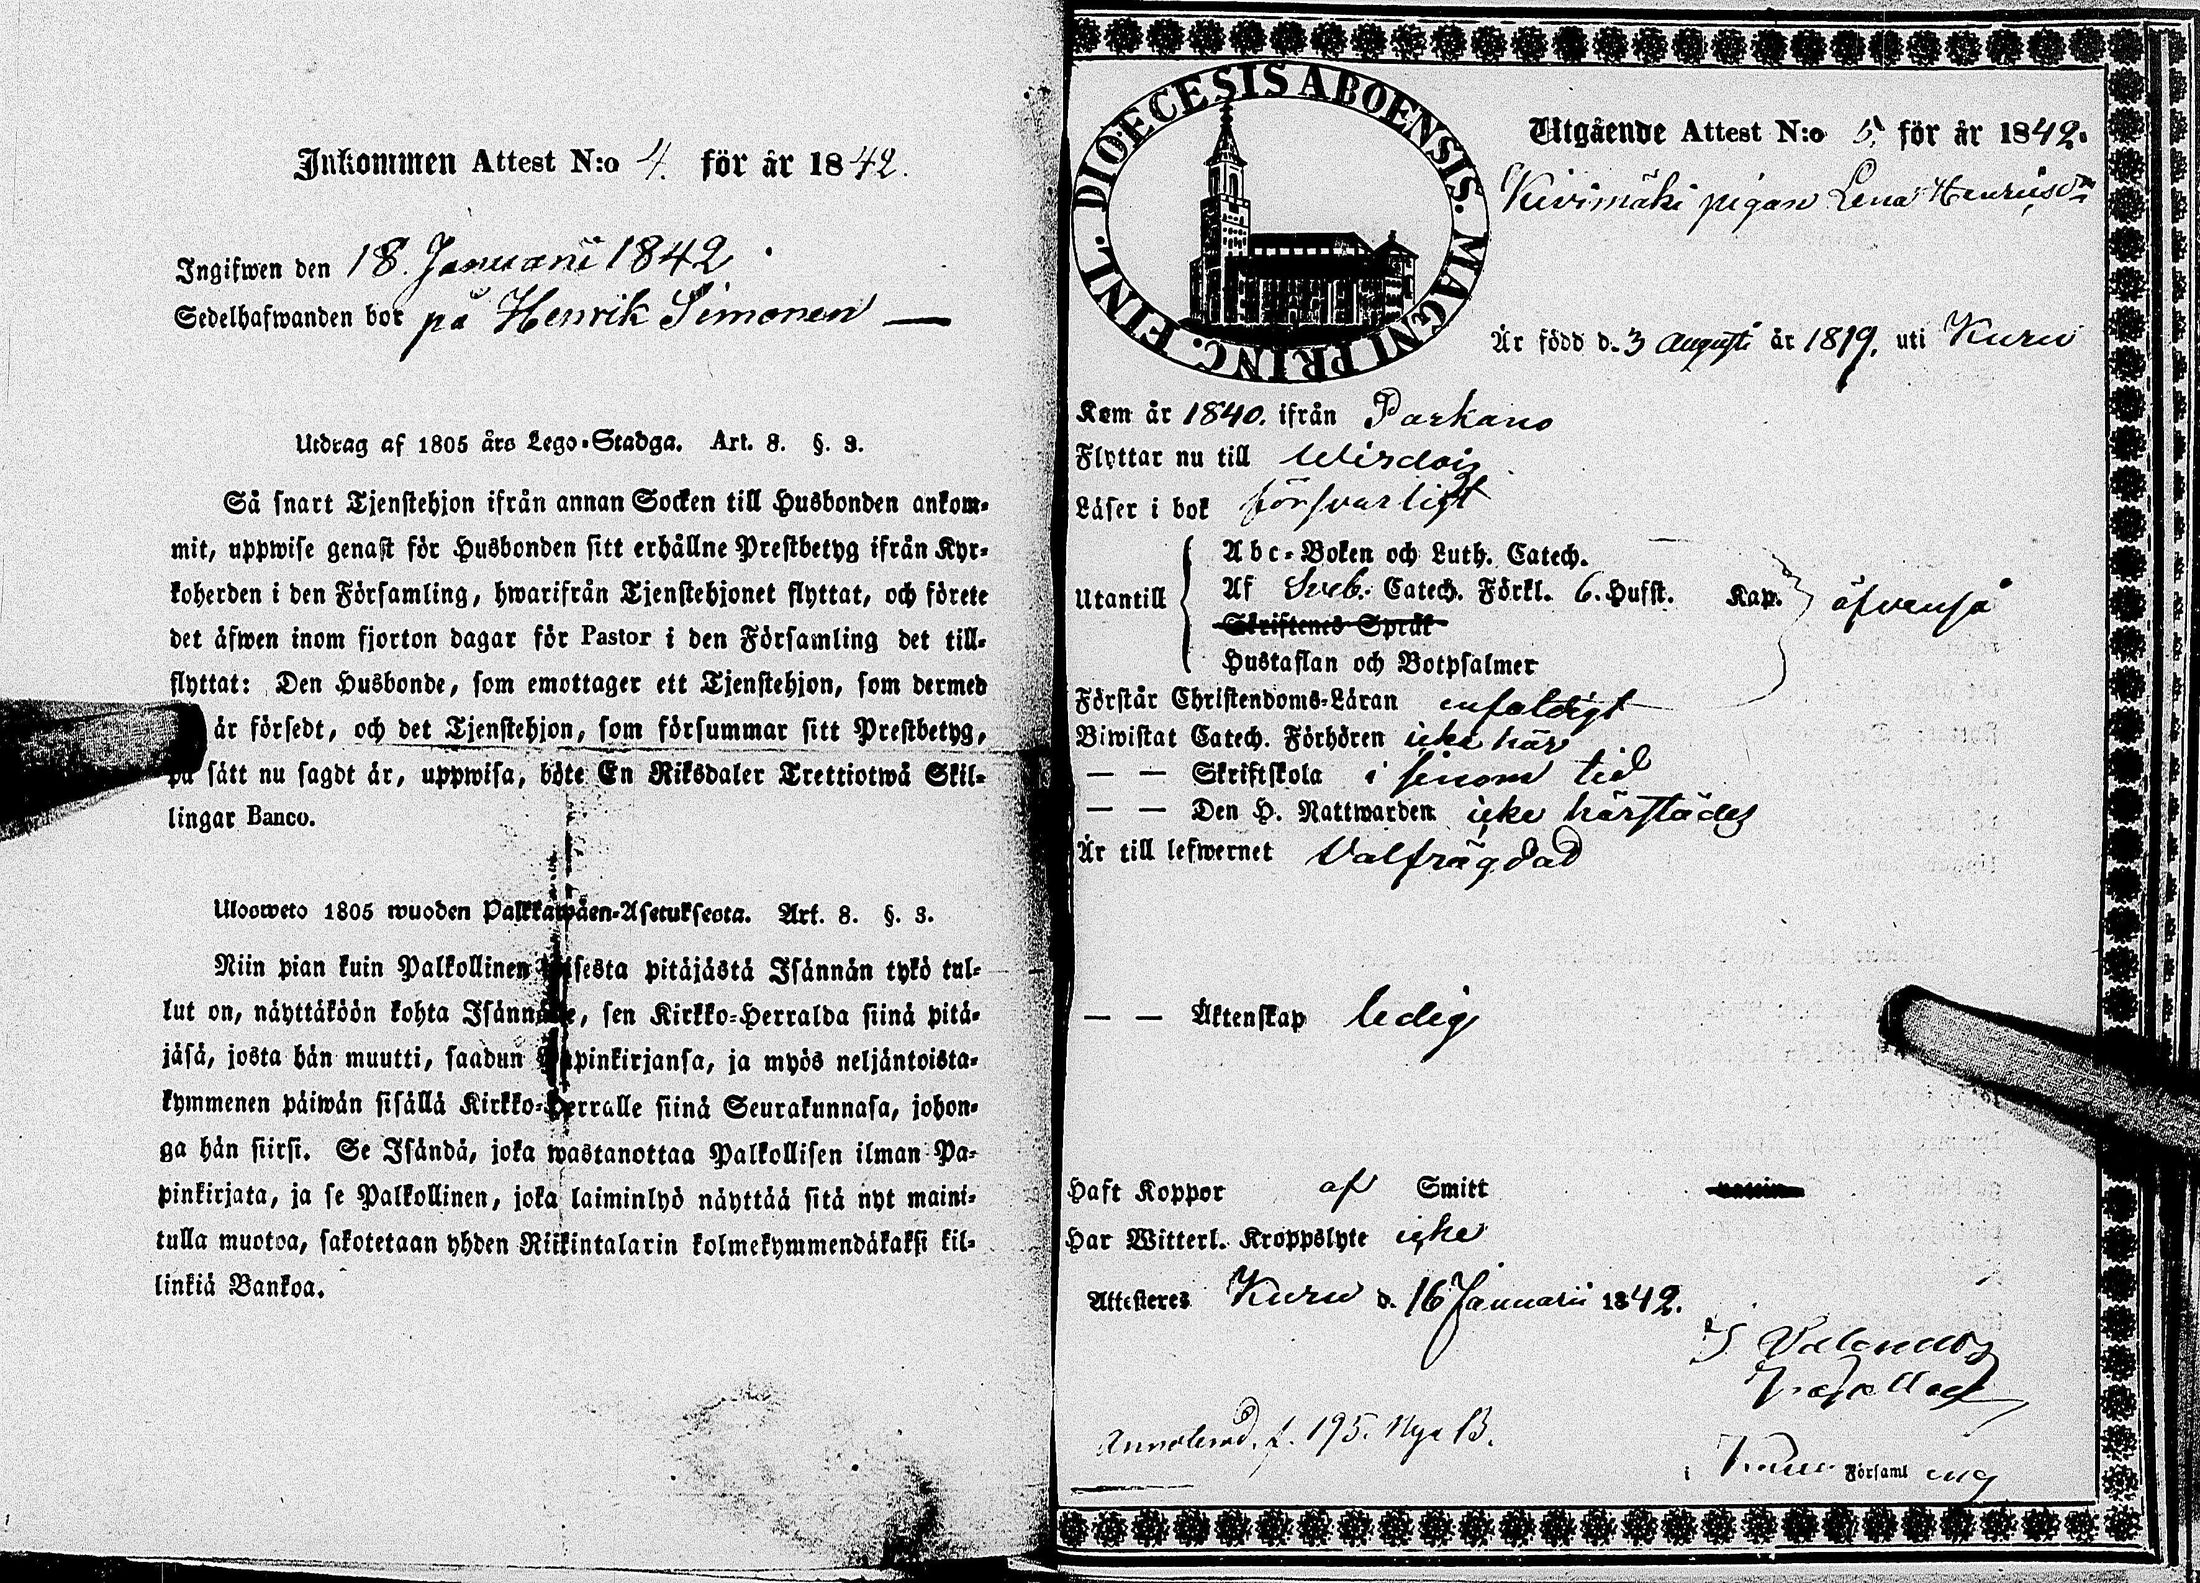 Inkommen Attest N:o 4. för år 1842.
Ingifwen den 18. Januarii 1842
Sedelhafwanden bor på Henrik Simonen —
Utdrag af 1805 års Lego-Stadga. Art. 8. §. 3.
Så snart Tjenstehjon ifrån annan Socken till Husbonden ankom-
mit, uppwise genast för Husbonden sitt erhållne Prestbetyg ifrån Kyr-
koherden i den Församling, hwarifrån Tjenstehjonet flyttat, och förete
det äfwen inom fjorton dagar för Pastor i den Församling det till-
flyttat: Den Husbonde, som emottager ett Tjenstehjon, som dermed
är försedt, och det Tjenstehjon, som försummar sitt Prestbetyg,
på sätt nu sagdt är, uppwisa, böte En Riksdaler Trettiotwå Skil-
lingar Banco.
Ulosweto 1805 wuoden Palkkawäen-Asetuksesta. Art. 8. §. 3.
Niin pian kuin Palkollinen toisesta pitäjästä Isännän tykö tul-
lut on, näyttäköön kohta Isännälle, sen Kirkko-Herralda siinä pitä-
jäsä, josta hän muutti, saadun Papinkirjansa, ja myös neljäntoista-
kymmenen päiwän sisällä Kirkko-Herralle siinä Seurakunnasa, johon-
ga hän siirsi. Se Isändä, joka wastanottaa Palkollisen ilman Pa-
pinkirjata, ja se Palkollinen, joka laiminlyö näyttää sitä nyt maini-
tulla muotoa, sakotetaan yhden Riikintalarin kolmekymmendäkaksi kil-
linkiä Bankoa.
DIOECESIS ABOENSIS. MAGNI PRINC. FINL.
Utgående Attest N:o 5. för år 1842.
Kivimäki pigan Lena Henricsdr
Är född d. 3 Augusti år 1819. uti Kuru
Kom år 1840. ifrån Parkano
Flyttar nu till Wirdois
Läser i bok försvarligt
Utantill
Abc-Boken och Luth. Catech.
Af Sveb. Catech. Förkl. 6. Hufst. Kap. äfvenså
Skriftenes Språk
Hustaflan och Botpsalmer
Förstår Christendoms-Läran enfaldigt
Biwistat Catech. Förhören icke här
— — Skriftskola i sinom tid
— — Den H. Nattwarden icke härstädes
Är till lefwernet Välfrägdad
— — Äktenskap ledig
Haft Koppor af Smitt
Har Witterl. Kroppslyte icke
Attesteres Kuru d. 16 Januarii 1842.
Annoterad. f. 195. Nya B.
i Kuru Församling